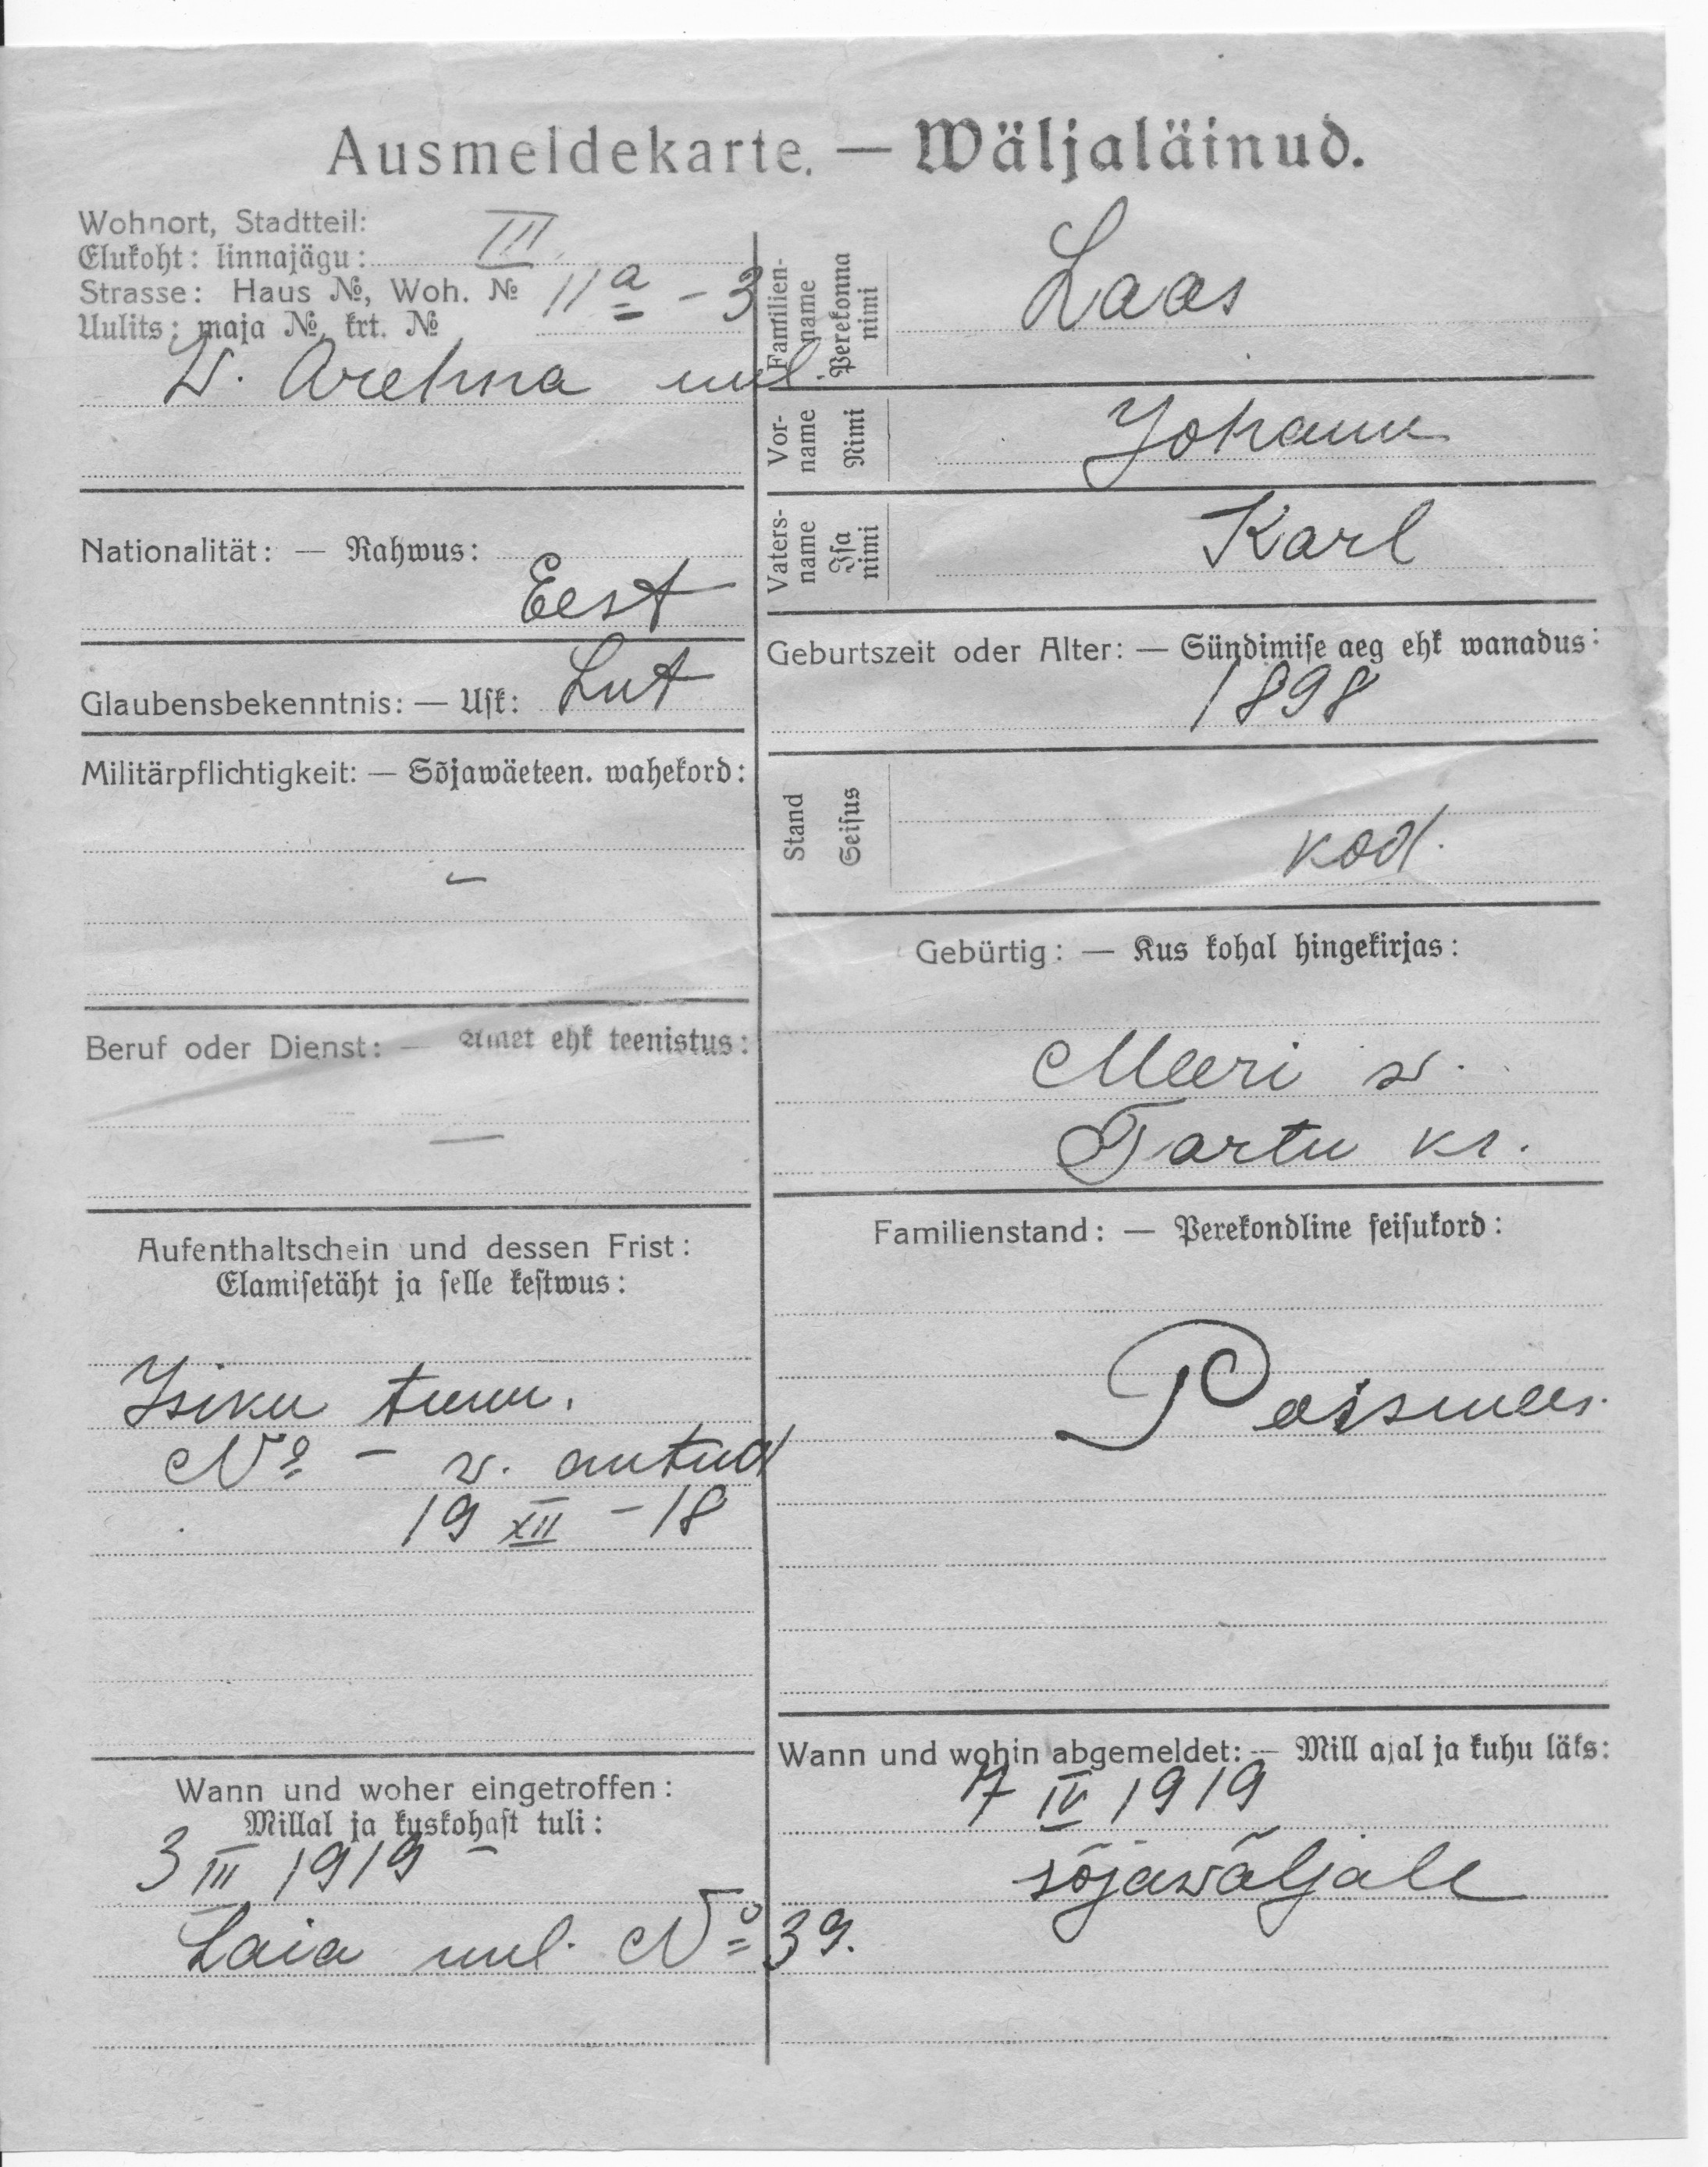 Ausmeldekarte. — Wäljaläinud.
Wohnort, Stadtteil:
Elukoht: linnajägu: III
Strasse: Haus №, Woh. № 11a - 3
Uulits: maja №, krt. №
uul.
Nationalität: — Rahwus:
Eest
Glaubensbekenntnis: — Usk: Lut
Militärpflichtigkeit: — Sõjawäeteen. wahekord:
-
Beruf oder Dienst: — Amet ehk teenistus:
—
Aufenthaltschein und dessen Frist:
Elamisetäht ja selle kestwus:
Isiku tunn.
№ - w. antud
19 XII - 18
Wann und woher eingetroffen:
Millal ja kuskohast tuli:
3 III 1919 -
Laia uul. № 39.
Familien-name Perekonna nimi Laas
Vor-name Nimi Johann
Vaters-name Isa nimi Karl
Geburtszeit oder Alter: — Sündimise aeg ehk wanadus:
1898
Stand Seisus kod.
Gebürtig: — Kus kohal hingekirjas:
Meeri w.
Tartu kr.
Familienstand: — Perekondline seisukord:
Poismees.
Wann und wohin abgemeldet: — Mill ajal ja kuhu läks:
7 IV 1919
sõjawäljale